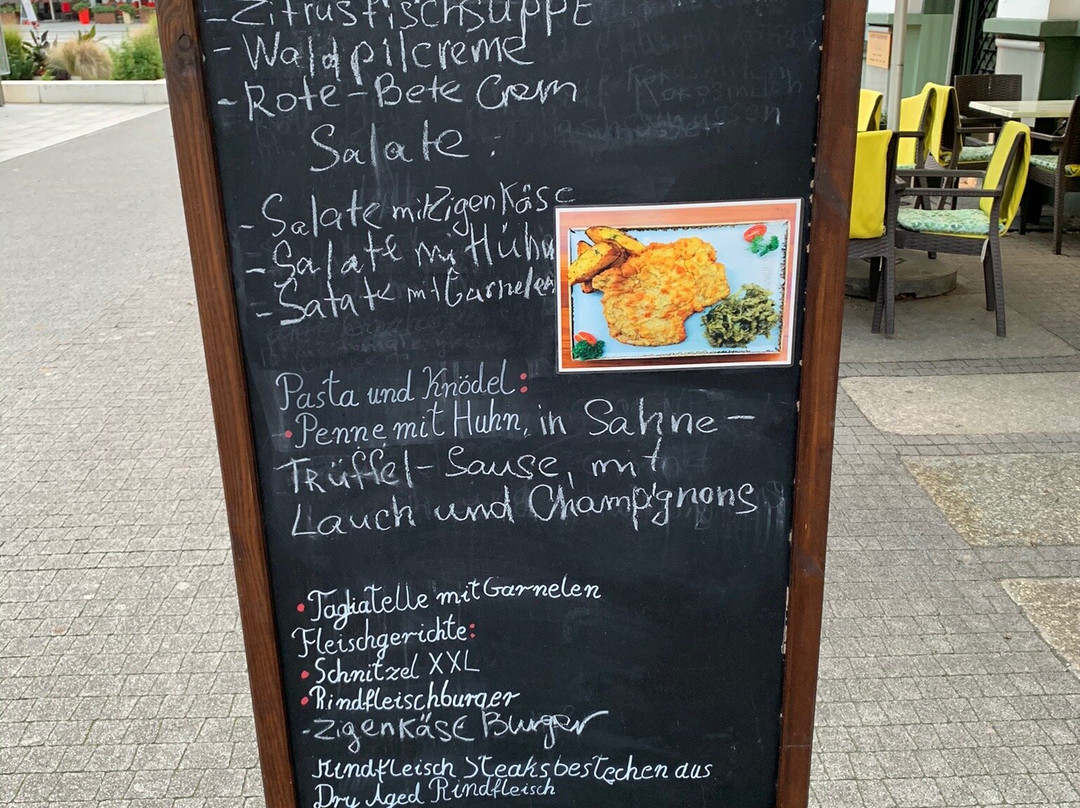 -Zitrusfischsuppe
-Waldpilcreme
-Rote-Bete Crem
Salate:
-Salate mit Zigenkäse
-Salate mit Huhn
-Salate mit Garnelen
Pasta und Knödel:
•Penne mit Huhn, in Sahne-
Trüffel-Sause, mit
Lauch und Champignons
•Tagliatelle mit Garnelen
Fleischgerichte:
•Schnitzel XXL
•Rindfleischburger
-Zigenkäse Burger
Rindfleisch Steaks bestechen aus
Dry Aged Rindfleisch